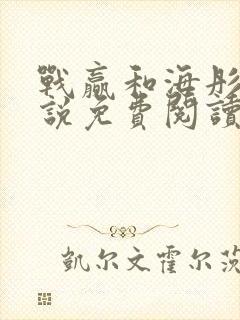 戰贏和海彤
說免費閱讀
凱尔文霍尔茨